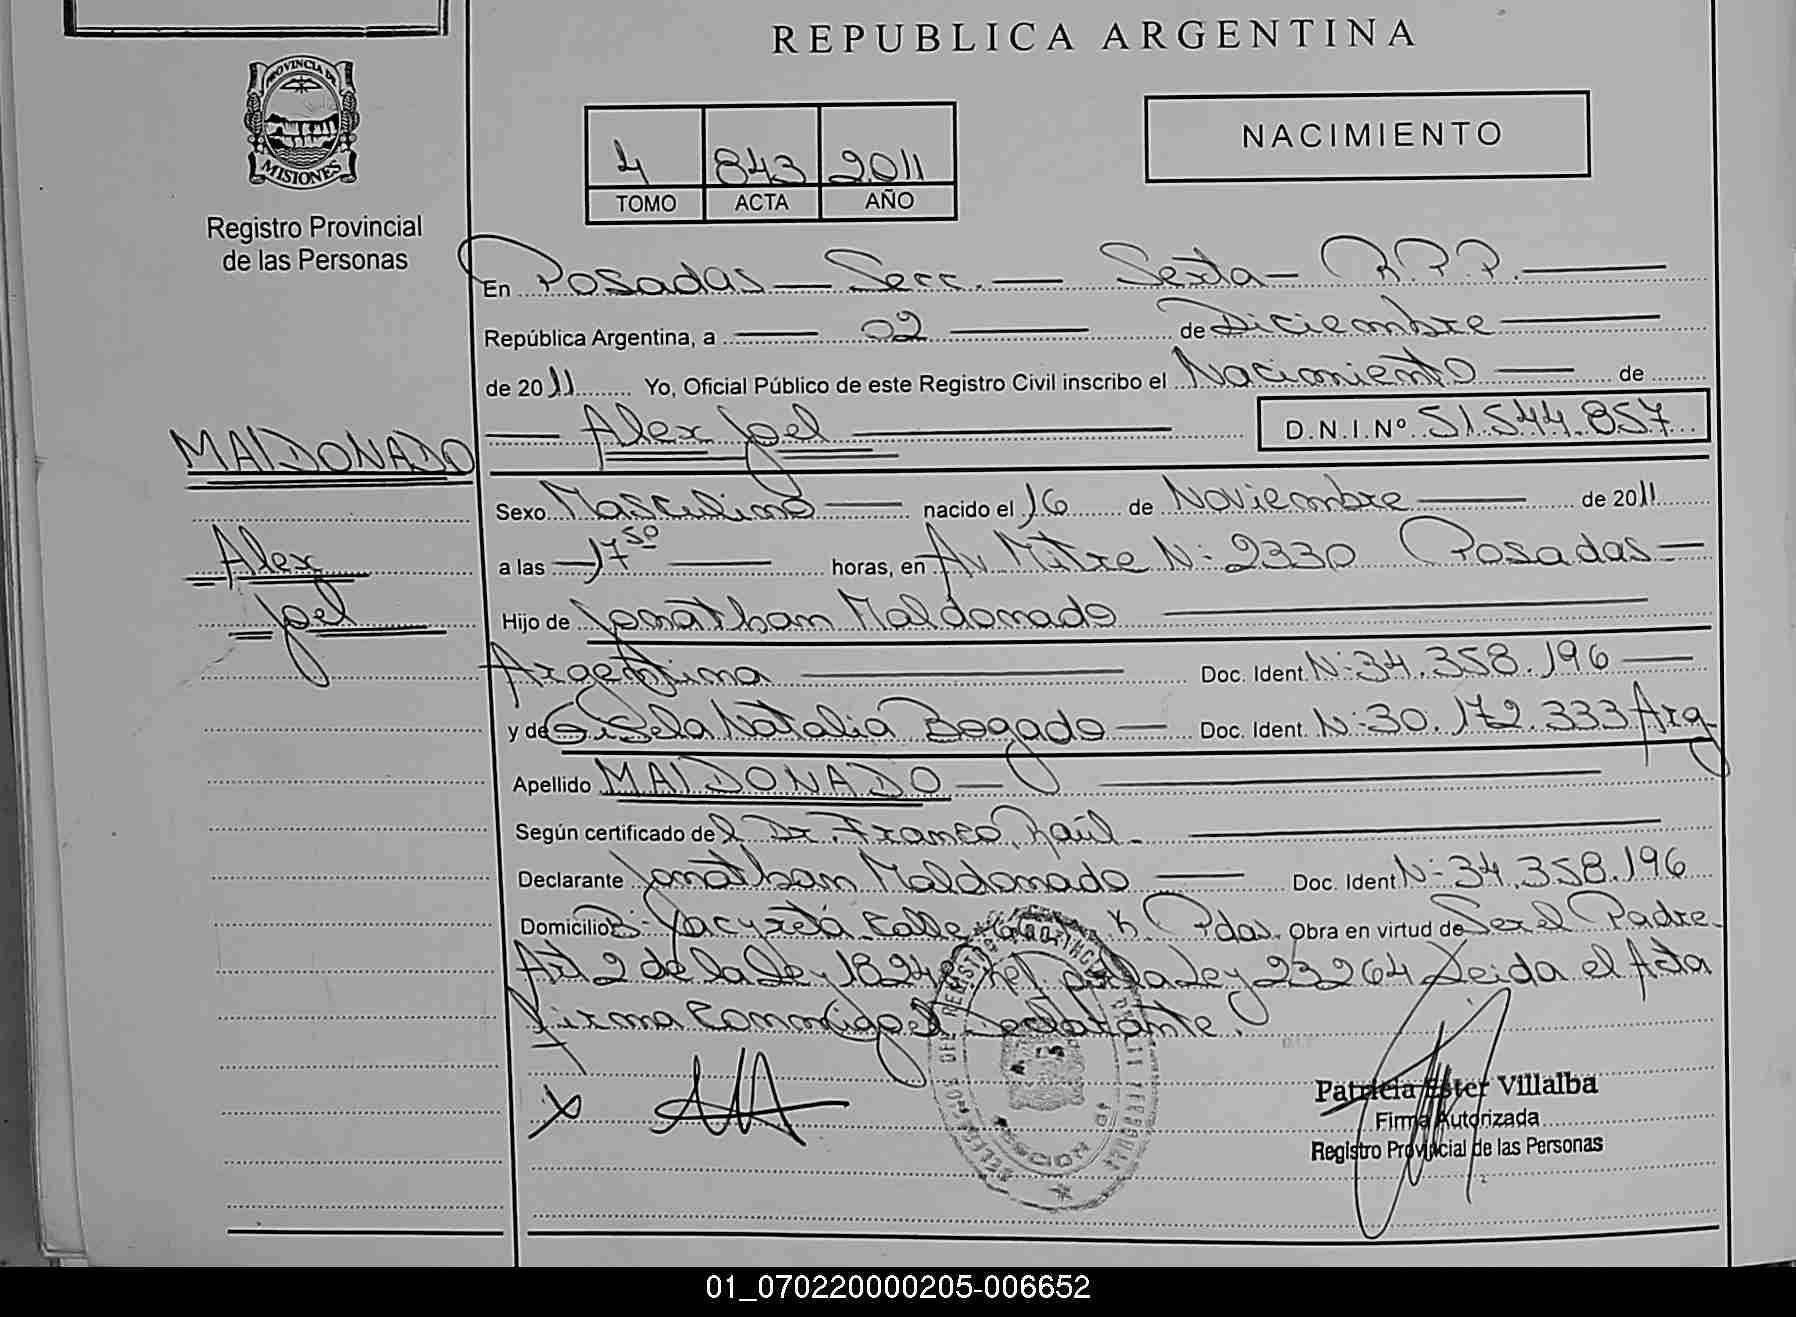 REPUBLICA ARGENTINA
PROVINCIA DE
MISIONES
Registro Provincial
de las Personas
4 843 2011
TOMO ACTA AÑO
NACIMIENTO
En Posadas — Secc. — Sexta — R.P.P. —
República Argentina, a — 02 — de Diciembre —
de 2011 Yo, Oficial Público de este Registro Civil inscribo el Nacimiento — de
— Alex Joel — D.N.I.Nº 51.544.857
MALDONADO
Alex
Joel
Sexo Masculino — nacido el 16 de Noviembre — de 2011
a las — 17 50 — horas, en Av Mitre N: 2330 Posadas —
Hijo de Jonathan Maldonado —
Argentina — Doc. Ident. N: 34.358.196 —
y de Gisela Natalia Bogado — Doc. Ident. N: 30.172.333 Arg
Apellido MALDONADO —
Según certificado del Dr. Franco, Raúl —
Declarante Jonathan Maldonado — Doc. Ident N: 34.358.196
Domicilio B: Yacyretá Calle K Pdas. Obra en virtud de Ser el Padre
Art 2 de la Ley 18248 por la Ley 23264 Leida el Acta
Firma Conmigo el Declarante.
X
Patricia Ester Villalba
Firma Autorizada
Registro Provincial de las Personas
01_070220000205-006652